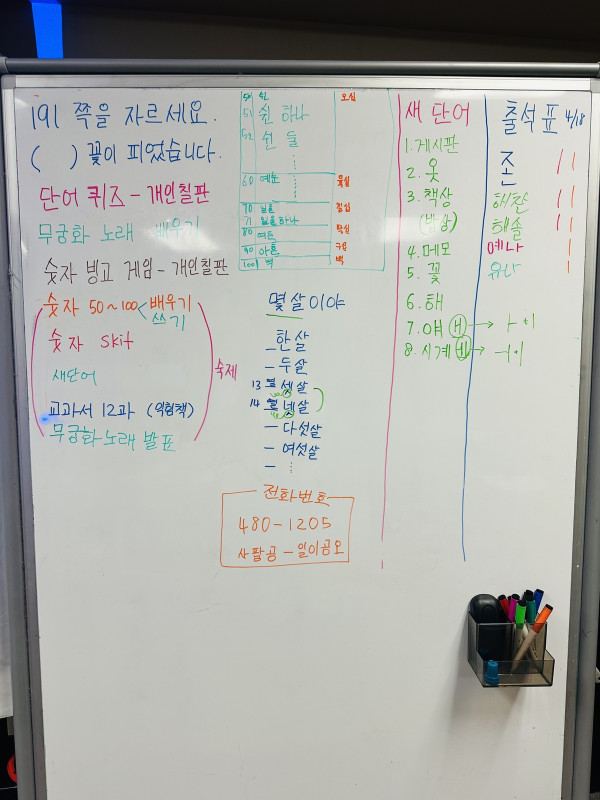 191 쪽을 자르세요.
( ) 꽃이 피었습니다.
단어 퀴즈 - 개인칠판
무궁화 노래 배우기
숫자 빙고 게임 - 개인칠판
숫자 50~100 배우기
쓰기
숫자 skit
새단어
교과서 12과 (워크책)
무궁화 노래 발표
숙제
50 쉰 오십
51 쉰 하나
52 쉰 둘
60 예순 육십
70 일흔 칠십
71 일흔하나
80 여든 팔십
90 아흔 구십
100 백 백
몇 살이야
한살
두살
13 열 셋살
14 열 넷살
다섯살
여섯살
전화번호
480-1205
사팔공 - 일이공오
새 단어
1. 게시판
2. 옷
3. 책상
(밥상)
4. 메모
5. 꽃
6. 해
7. 얘 ㅐ → ㅏ+ㅣ
8. 시계 ㅔ → ㅓ+ㅣ
출석표 4/18
존
해찬
해솔
예나
유나